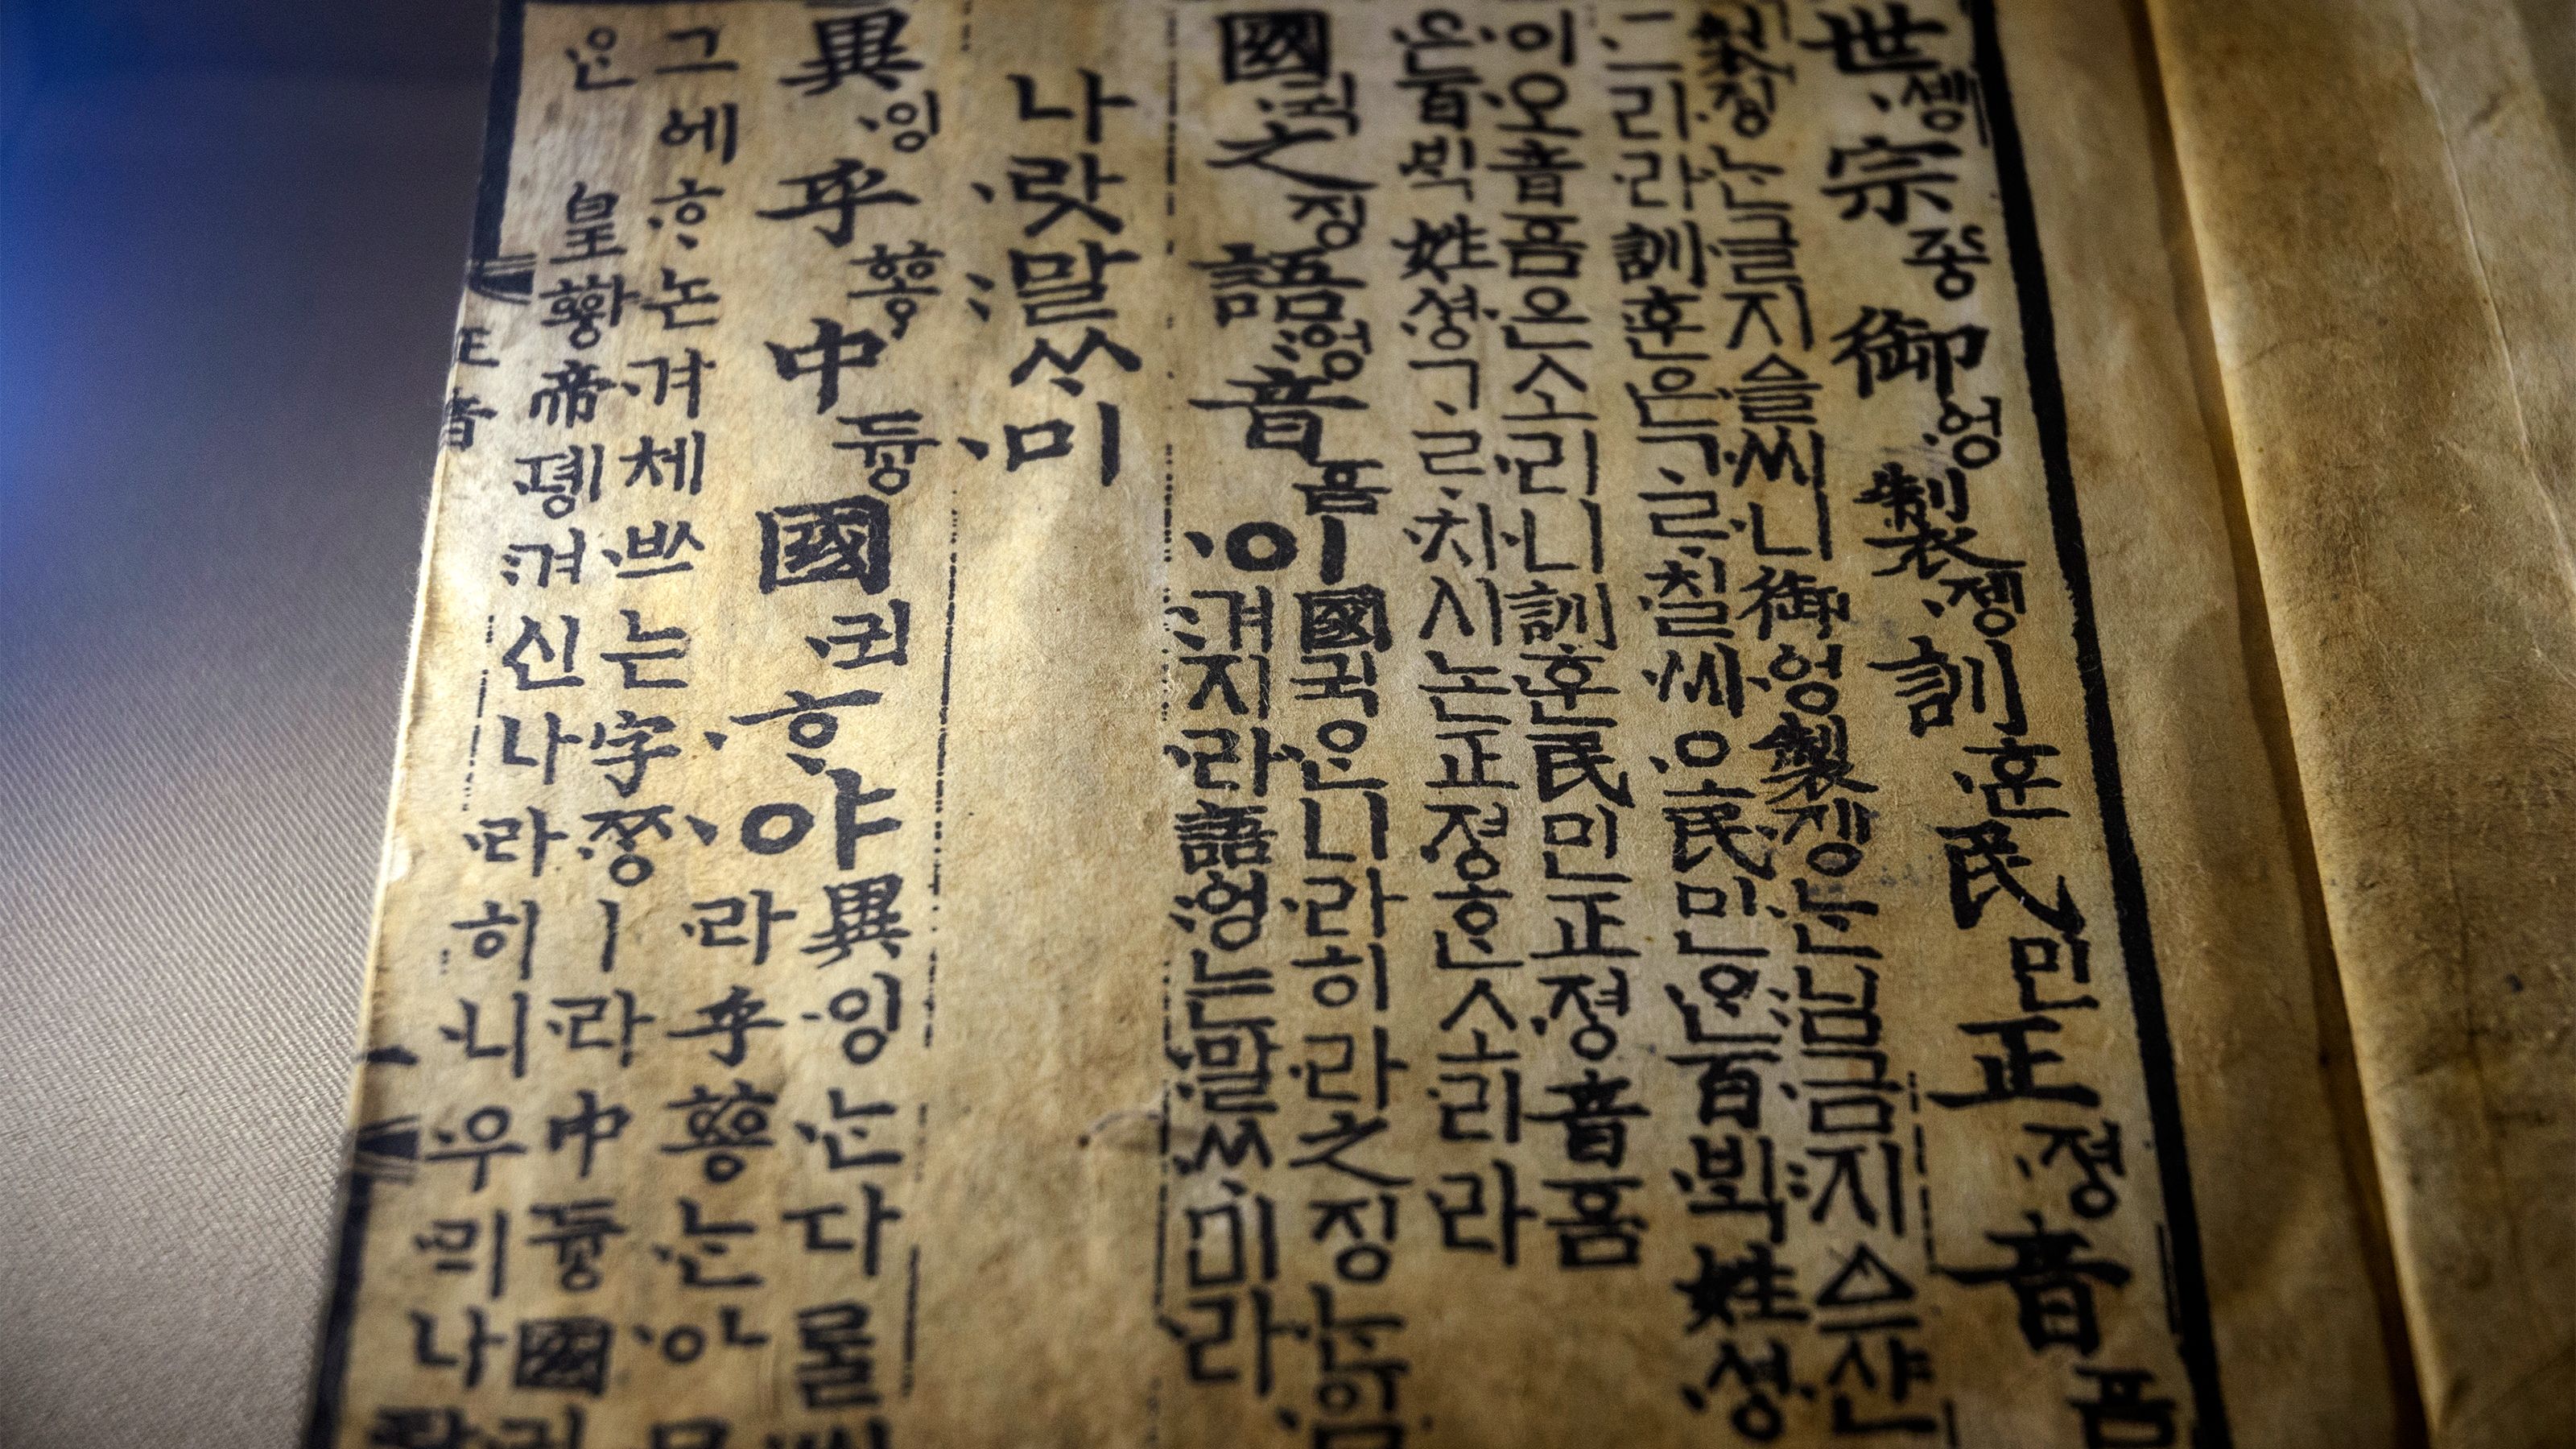 世·솅宗종御·엉製·졩訓·훈民민正·졍音ᅙᅳᆷ
製·졩·ᄂᆞᆫ·글지·ᅀᅳᆯ·씨·니御·ᅌᅥᆼ製·졩·ᄂᆞᆫ:님금:지·ᅀᅳ·샨
·그·리·라訓·훈·은ᄀᆞᄅᆞ·칠·씨·오民민·ᄋᆞᆫ百·ᄇᆡᆨ姓·셩
·이·오音ᅙᅳᆷ·은소·리·니訓·훈民민正·졍音ᅙᅳᆷ
·은百·ᄇᆡᆨ姓·셩ᄀᆞᄅᆞ·치시·논正·졍ᄒᆞᆫ소·리·라
國·귁之징語:ᅌᅥᆼ音ᅙᅳᆷ·이
國·귁·ᄋᆞᆫ나·라히·라之징·ᄂᆞᆫ·입
:겨지·라語:ᅌᅥᆼ·는:말ᄊᆞ·미·라
나·랏:말ᄊᆞ·미
異·잉乎ᅘᅩᆼ中듕國·귁·ᄒᆞ·야
異·잉·ᄂᆞᆫ다ᄅᆞᆯ
·라乎ᅘᅩᆼ·ᄂᆞᆫ:아
그ᅌᅦ·ᄒᆞ논·겨체·ᄡᅳ는字·ᄍᆞᆼㅣ·라中듕國
·ᄋᆞᆫ皇ᅘᅪᇰ帝·뎽:겨신나·라히·니·우·리나